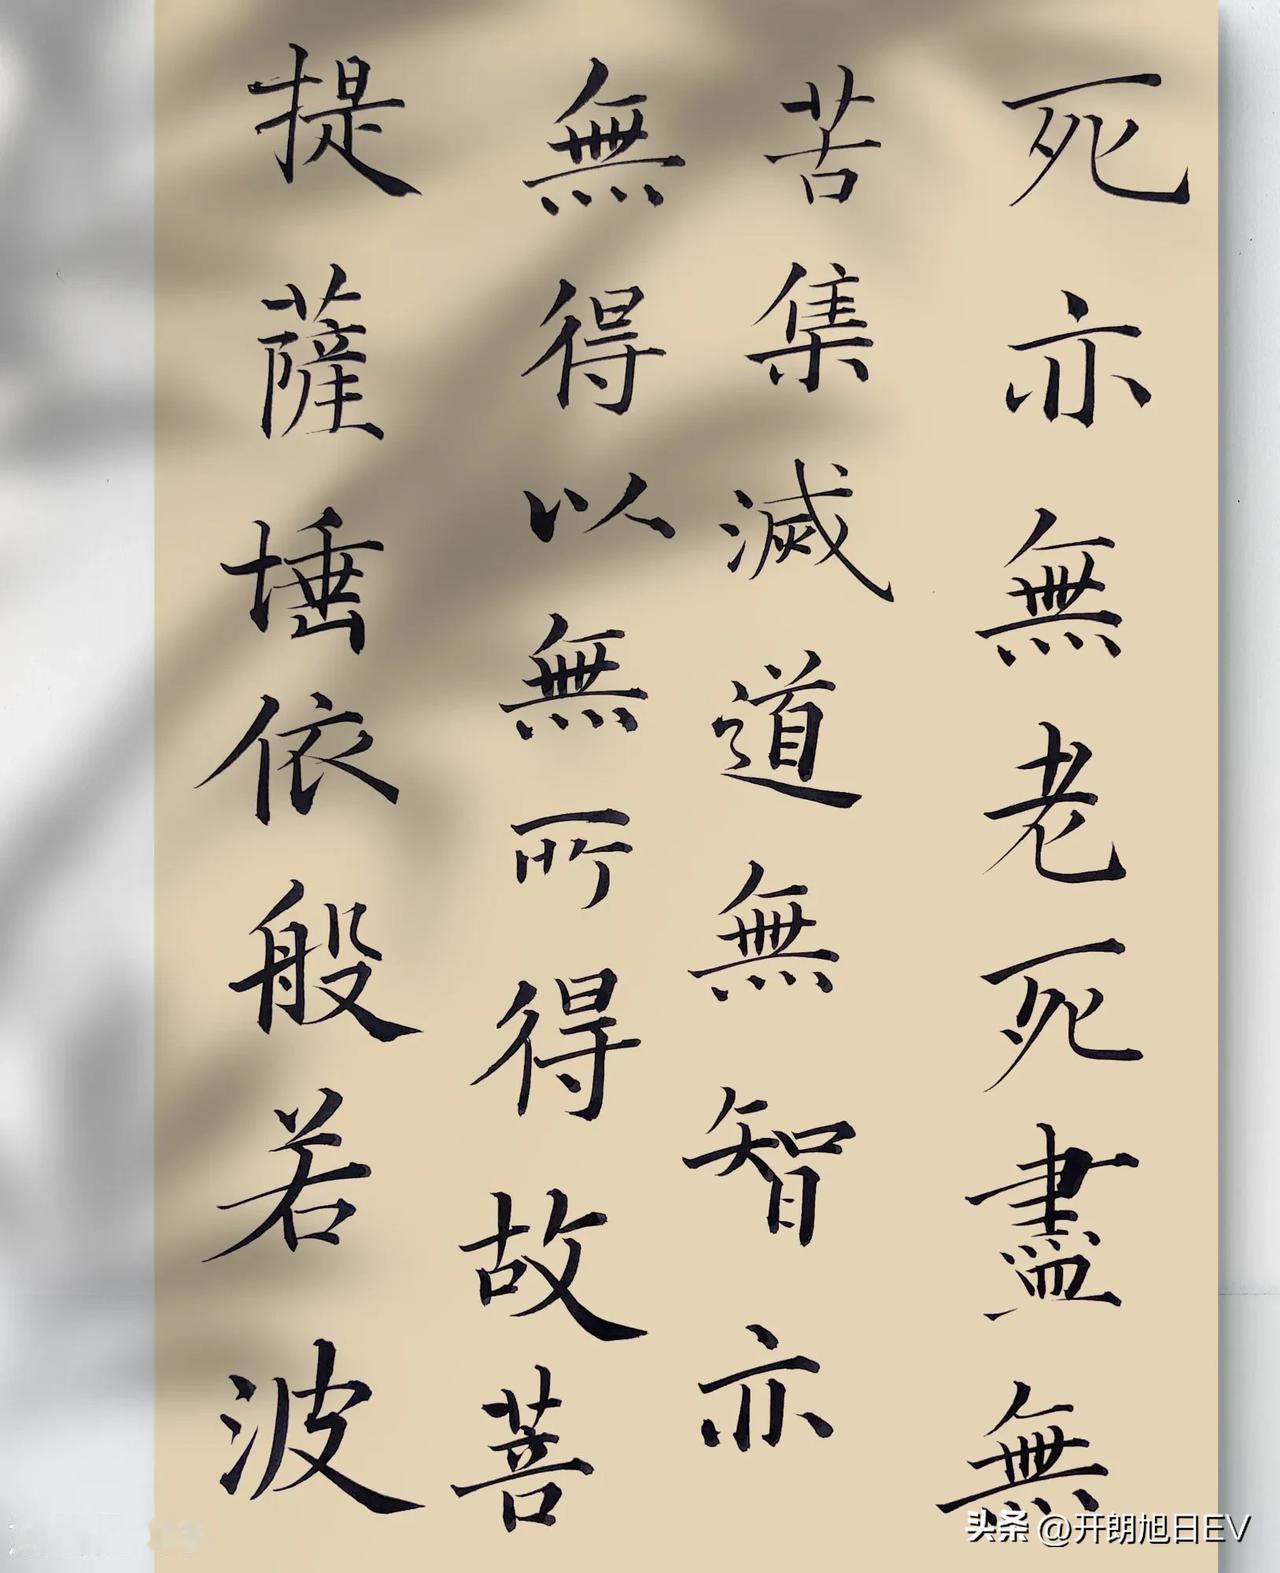 死亦無老死盡無
苦集滅道無智亦
無得以無所得故菩
提薩埵依般若波
头条 @开朗旭日EV